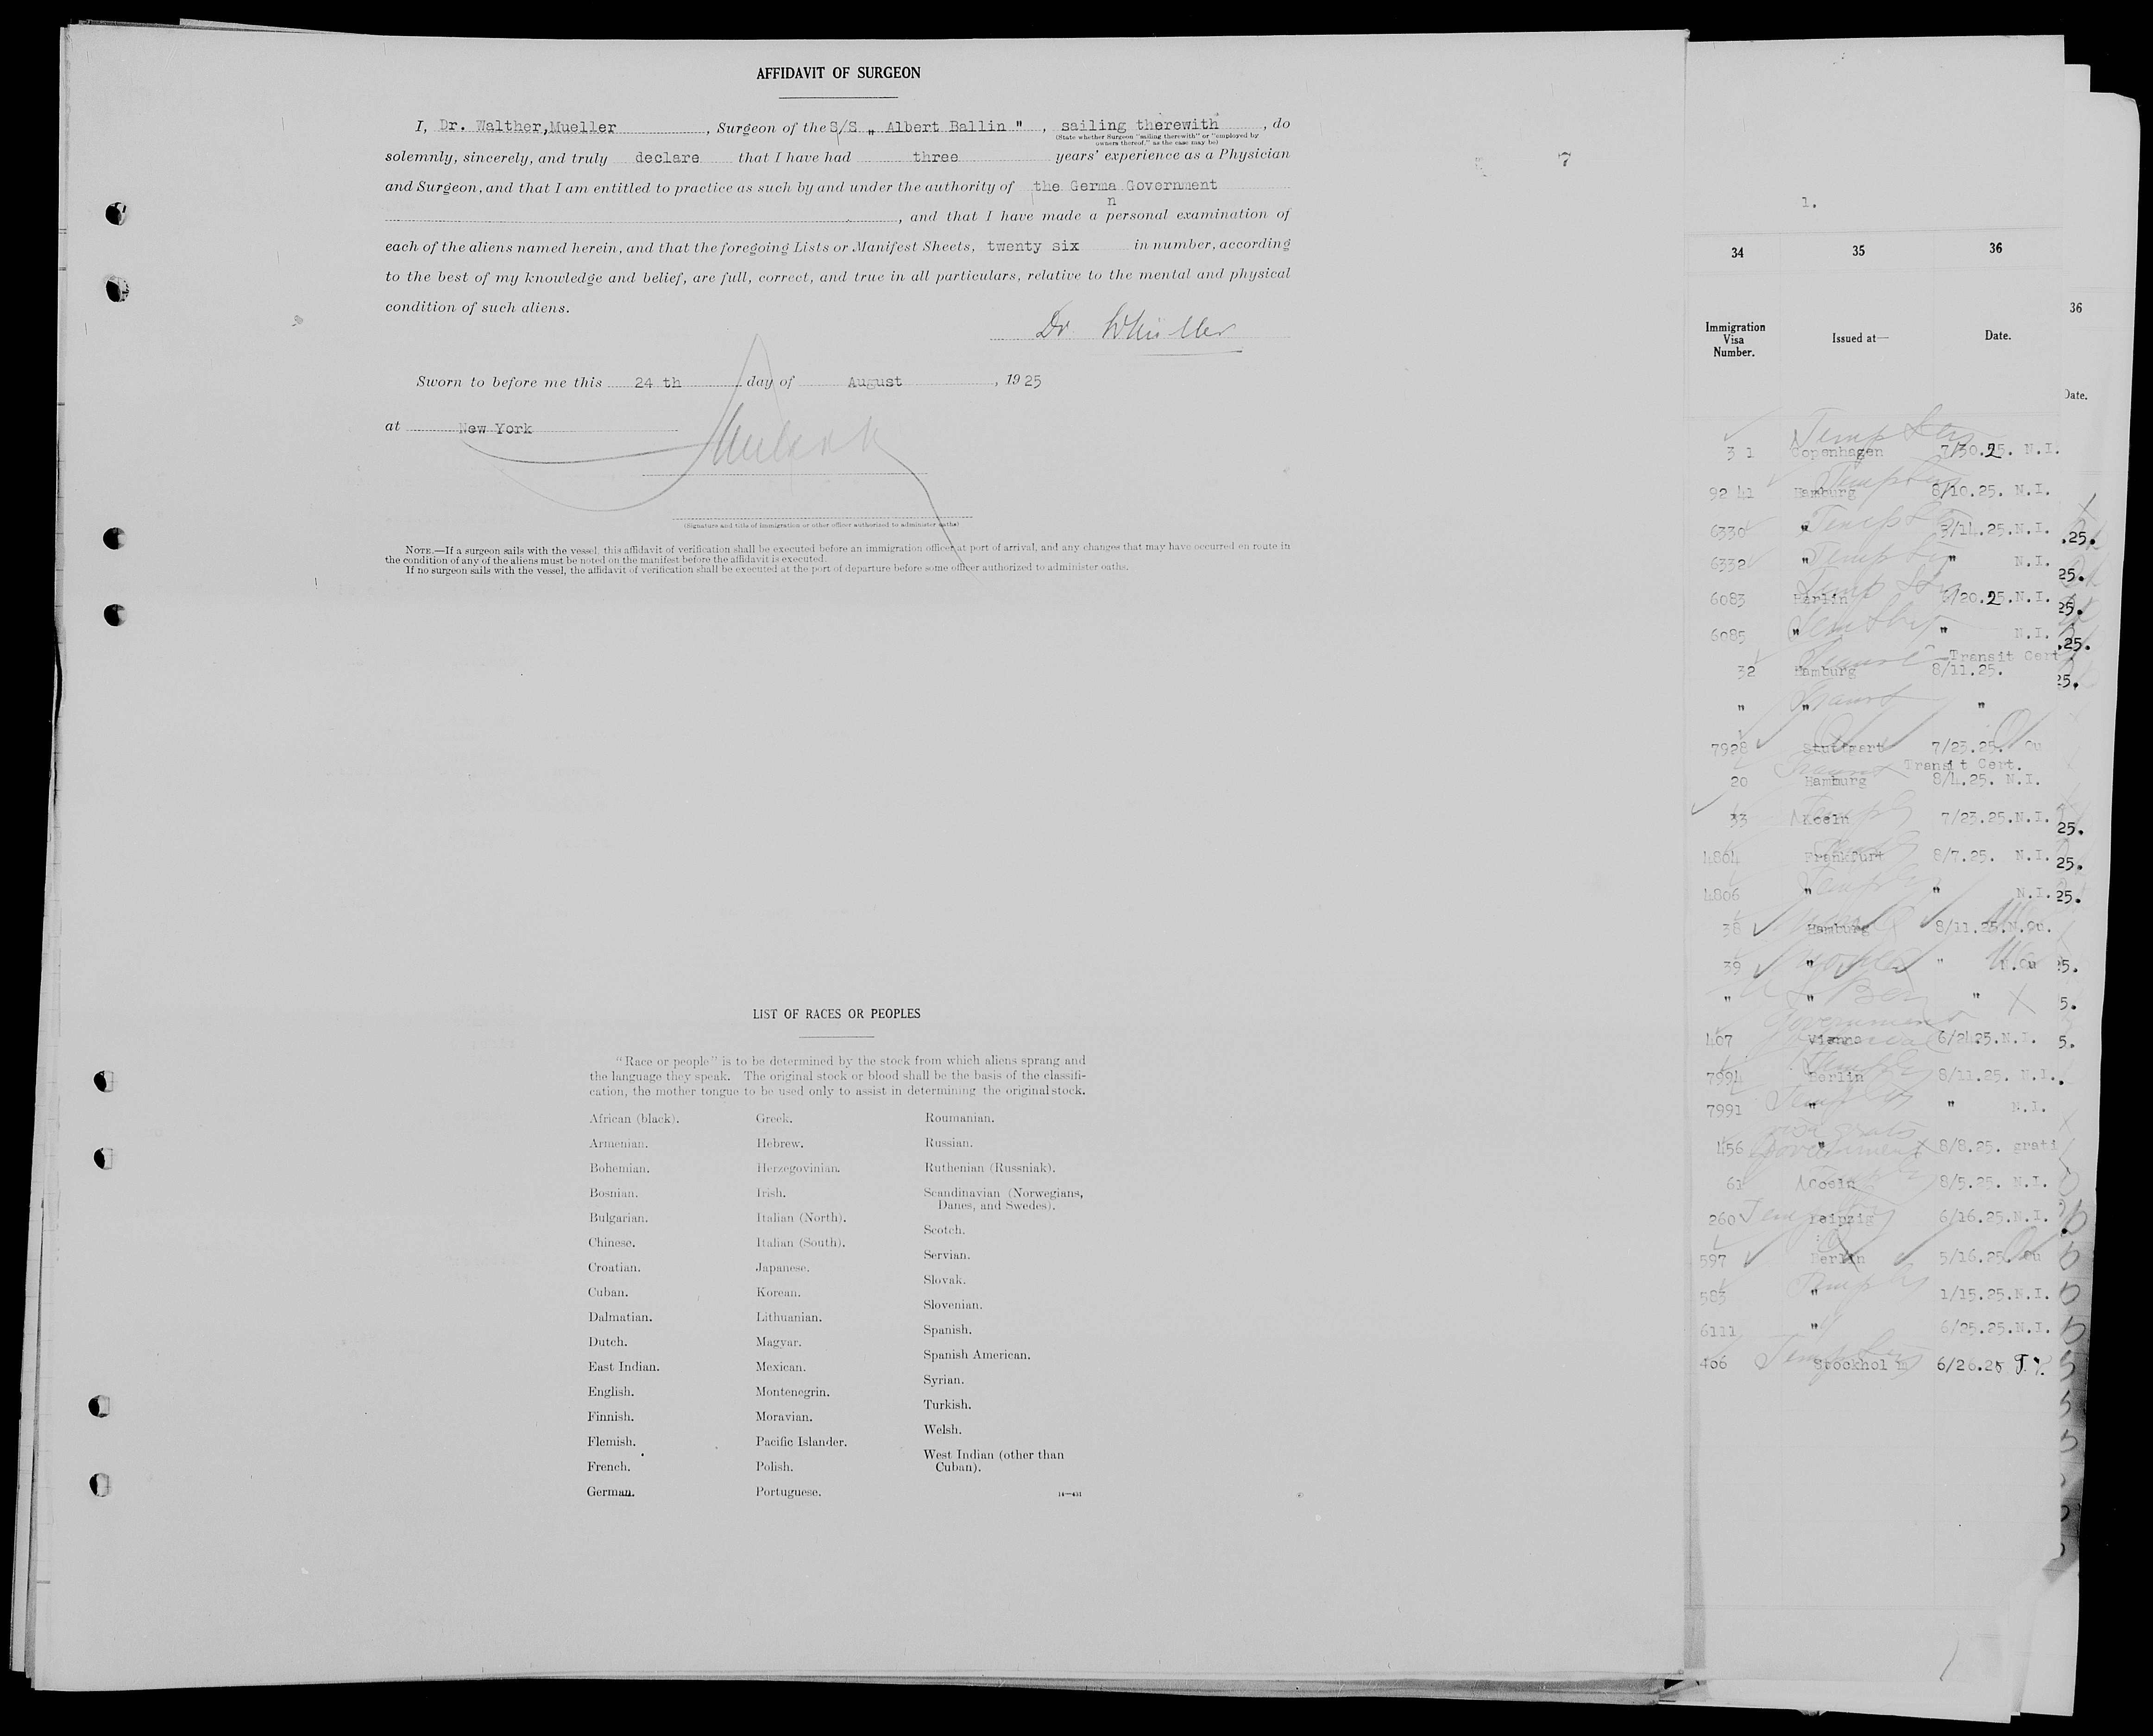 AFFIDAVIT OF SURGEON
I, Dr. Walther,Mueller, Surgeon of the S/S „ Albert Ballin ", sailing therewith, do
(State whether Surgeon "sailing therewith" or "employed by
owners thereof," as the case may be)
solemnly, sincerely, and truly declare that I have had three years' experience as a Physician
and Surgeon, and that I am entitled to practice as such by and under the authority of the Germa Government
n
, and that I have made a personal examination of
each of the aliens named herein, and that the foregoing Lists or Manifest Sheets, twenty six in number, according
to the best of my knowledge and belief, are full, correct, and true in all particulars, relative to the mental and physical
condition of such aliens.
Dr WMüller
Sworn to before me this 24 th day of August, 1925
at New York
(Signature and title of immigration or other officer authorized to administer oaths)
NOTE.—If a surgeon sails with the vessel, this affidavit of verification shall be executed before an immigration officer at port of arrival, and any changes that may have occurred en route in
the condition of any of the aliens must be noted on the manifest before the affidavit is executed.
If no surgeon sails with the vessel, the affidavit of verification shall be executed at the port of departure before some officer authorized to administer oaths.
LIST OF RACES OR PEOPLES
"Race or people" is to be determined by the stock from which aliens sprang and
the language they speak. The original stock or blood shall be the basis of the classifi-
cation, the mother tongue to be used only to assist in determining the original stock.
African (black).
Armenian.
Bohemian.
Bosnian.
Bulgarian.
Chinese.
Croatian.
Cuban.
Dalmatian.
Dutch.
East Indian.
English.
Finnish.
Flemish.
French.
German.
Greek.
Hebrew.
Herzegovinian.
Irish.
Italian (North).
Italian (South).
Japanese.
Korean.
Lithuanian.
Magyar.
Mexican.
Montenegrin.
Moravian.
Pacific Islander.
Polish.
Portuguese.
Roumanian.
Russian.
Ruthenian (Russniak).
Scandinavian (Norwegians,
Danes, and Swedes).
Scotch.
Servian.
Slovak.
Slovenian.
Spanish.
Spanish American.
Syrian.
Turkish.
Welsh.
West Indian (other than
Cuban).
14—431
7
1.
34 35 36
Immigration
Visa
Number.
Issued at—
Date.
36
Date.
3 1 Copenhagen 7/30.25. N.I.
92 41 Hamburg 8/10.25. N.I.
6330 " /14.25.N.I.
6332 " " N.I.
6083 Berlin /20.25.N.I.
6085 " " N.I.
Transit Cert
32 Hamburg 8/11.25.
" " "
7928 Stuttgart 7/23.25. Qu
Transit Cert.
20 Hamburg 8/4.25. N.I.
33 Koeln 7/23.25.N.I.
4804 Frankfurt 8/7.25. N.I.
4806 " " N.I.
38 Hamburg 8/11.25.N.Qu.
39 " " N.Qu
" " "
407 Vienna 6/24.25.N.I.
7994 Berlin 8/11.25. N.I.
7991 " " N.I.
visa gratis
456 " Government 8/8.25. grati
61 Coeln 8/5.25. N.I.
260 Leipzig 6/16.25.N.I.
597 Berlin 5/16.25 Qu
583 " 1/15.25.N.I.
6111 " 6/25.25.N.I.
406 Stockhol m 6/26.25